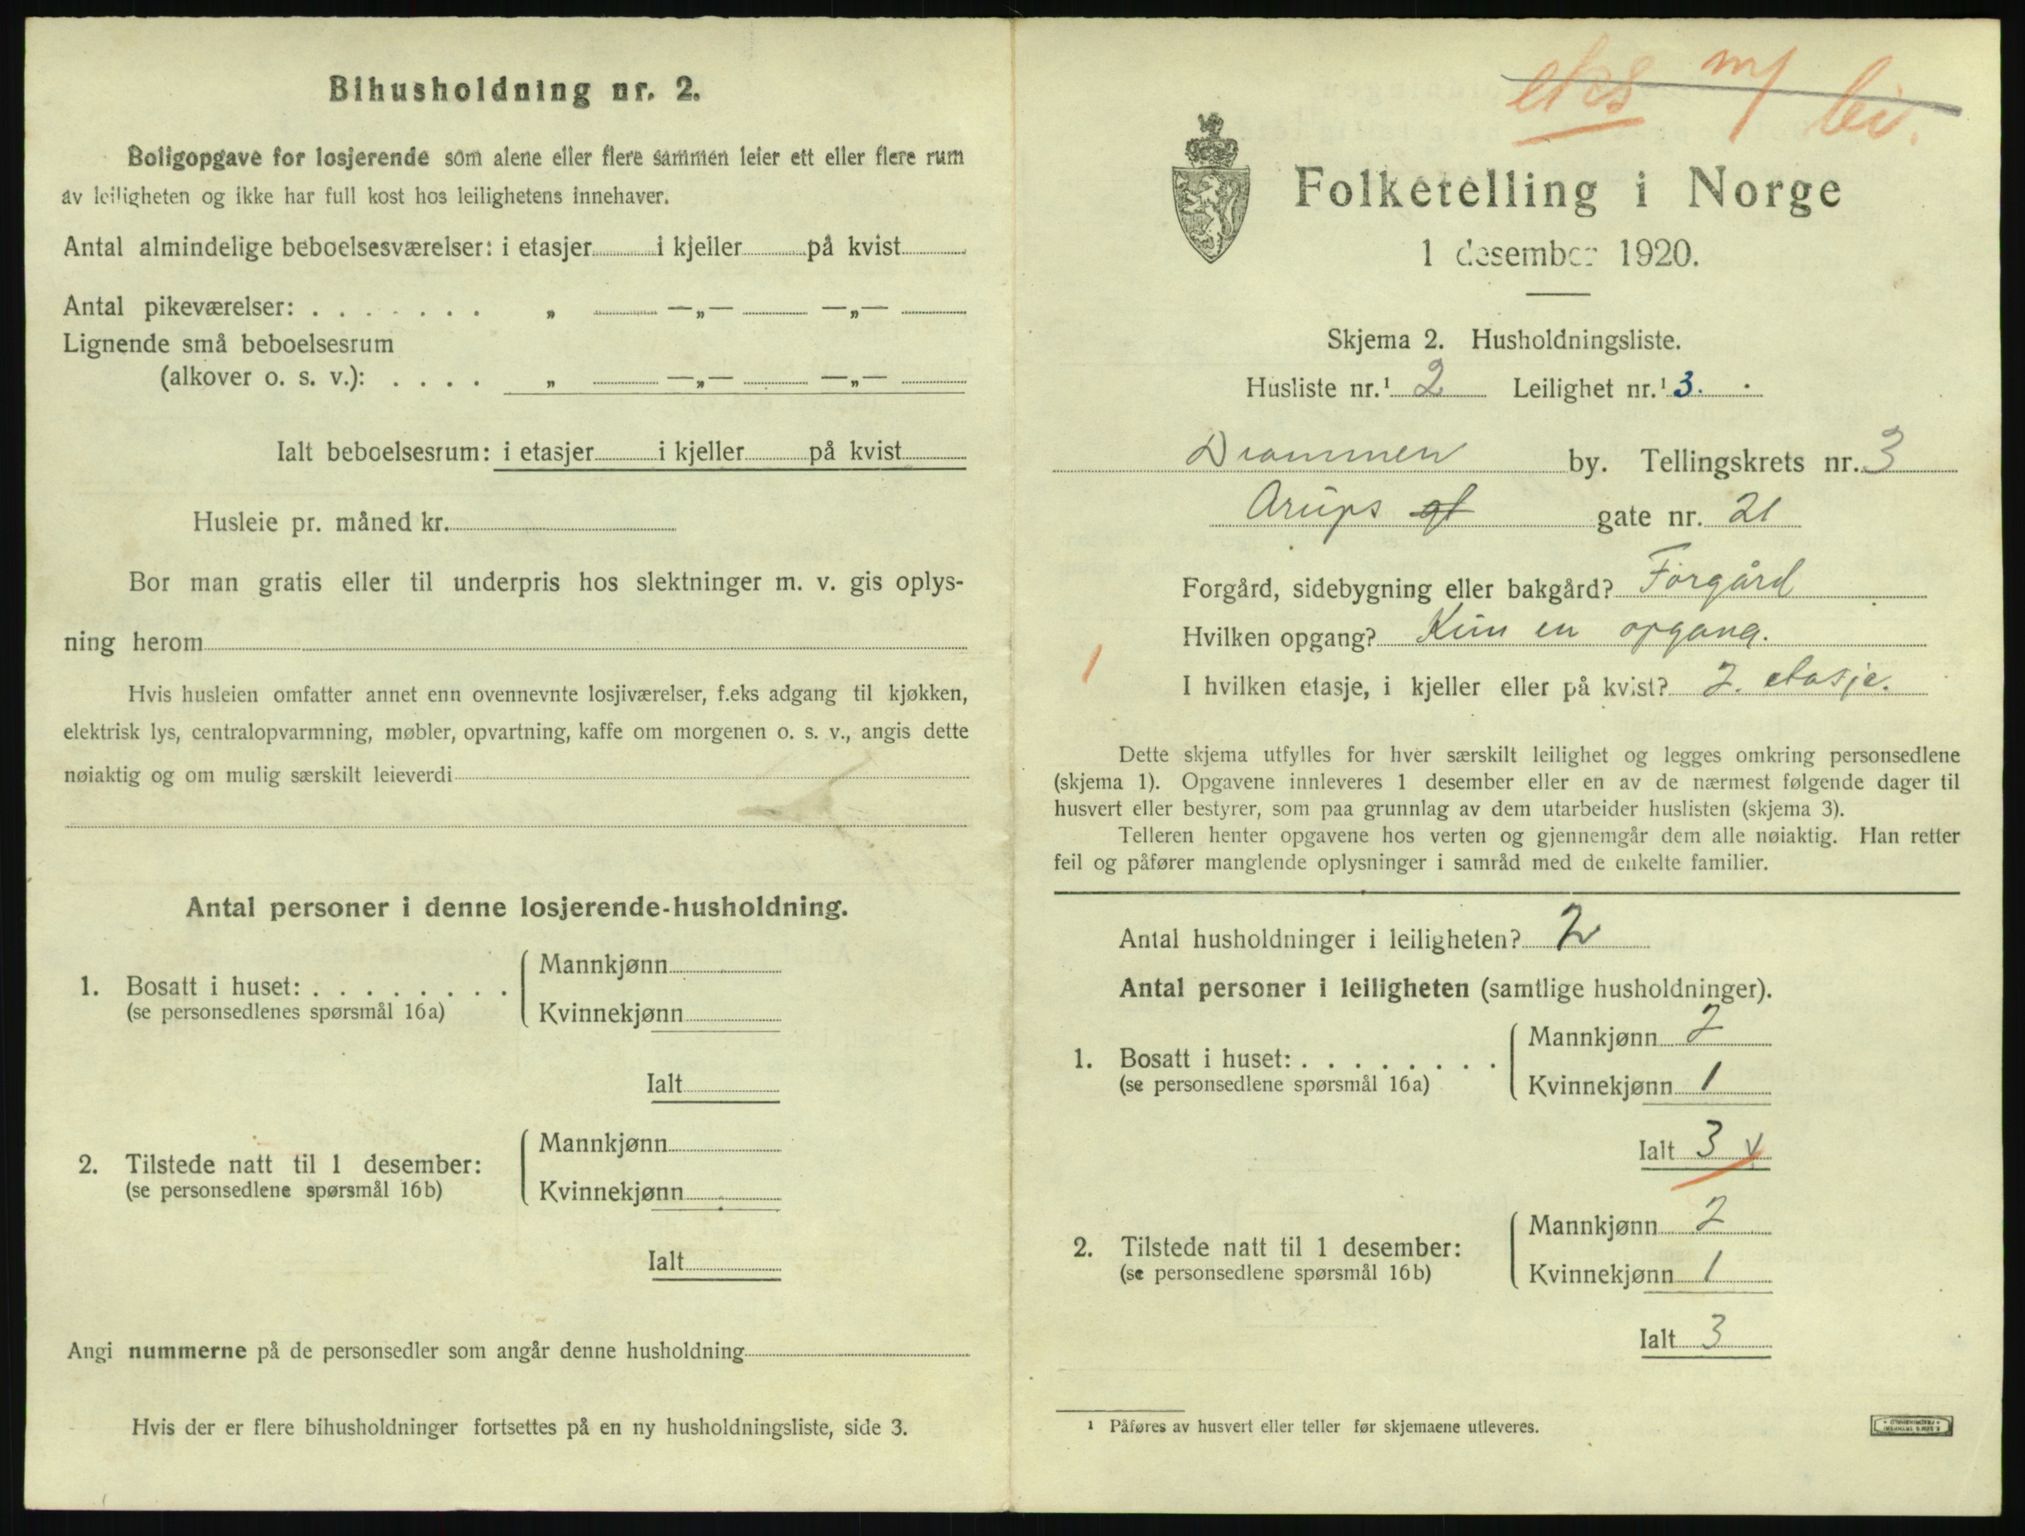 Bihusholdning nr. 2.
Boligopgave for losjerende som alene eller flere sammen leier ett eller flere rum
av leiligheten og ikke har full kost hos leilighetens innehaver.
Antal almindelige beboelsesværelser: i etasjer i kjeller på kvist
Antal pikeværelser: . . . . . . . „ —„— —„—
Lignende små beboelsesrum
(alkover o. s. v.): . . . . „ —„— —„—
Ialt beboelsesrum: i etasjer i kjeller på kvist
Husleie pr. måned kr.
Bor man gratis eller til underpris hos slektninger m. v. gis oplys-
ning herom
Hvis husleien omfatter annet enn ovennevnte losjiværelser, f.eks adgang til kjøkken,
elektrisk lys, centralopvarmning, møbler, opvartning, kaffe om morgenen o. s. v., angis dette
nøiaktig og om mulig særskilt leieverdi
Antal personer i denne losjerende-husholdning.
Mannkjønn
1. Bosatt i huset: . . . . . . . .
(se personsedlenes spørsmål 16a)
Kvinnekjønn
Ialt
Mannkjønn
2. Tilstede natt til 1 desember:
(se personsedlene spørsmål 16b)
Kvinnekjønn
Ialt
Angi nummerne på de personsedler som angår denne husholdning
Hvis der er flere bihusholdninger fortsettes på en ny husholdningsliste, side 3.
eks m/ lei.
Folketelling i Norge
1 desember 1920.
Skjema 2. Husholdningsliste.
Husliste nr.¹ 2 Leilighet nr.¹ 3.
Drammen by. Tellingskrets nr. 3
Arups gt gate nr. 21
Forgård, sidebygning eller bakgård? Forgård
Hvilken opgang? Kun en opgang.
1
I hvilken etasje, i kjeller eller på kvist? 2. etasje.
Dette skjema utfylles for hver særskilt leilighet og legges omkring personsedlene
(skjema 1). Opgavene innleveres 1 desember eller en av de nærmest følgende dager til
husvert eller bestyrer, som paa grunnlag av dem utarbeider huslisten (skjema 3).
Telleren henter opgavene hos verten og gjennemgår dem alle nøiaktig. Han retter
feil og påfører manglende oplysninger i samråd med de enkelte familier.
Antal husholdninger i leiligheten? 2
Antal personer i leiligheten (samtlige husholdninger).
Mannkjønn 2
1. Bosatt i huset: . . . . . . . .
(se personsedlene spørsmål 16a)
Kvinnekjønn 1
Ialt 3 v
Mannkjønn 2
2. Tilstede natt til 1 desember:
(se personsedlene spørsmål 16b)
Kvinnekjønn 1
Ialt 3
¹ Påføres av husvert eller teller før skjemaene utleveres.